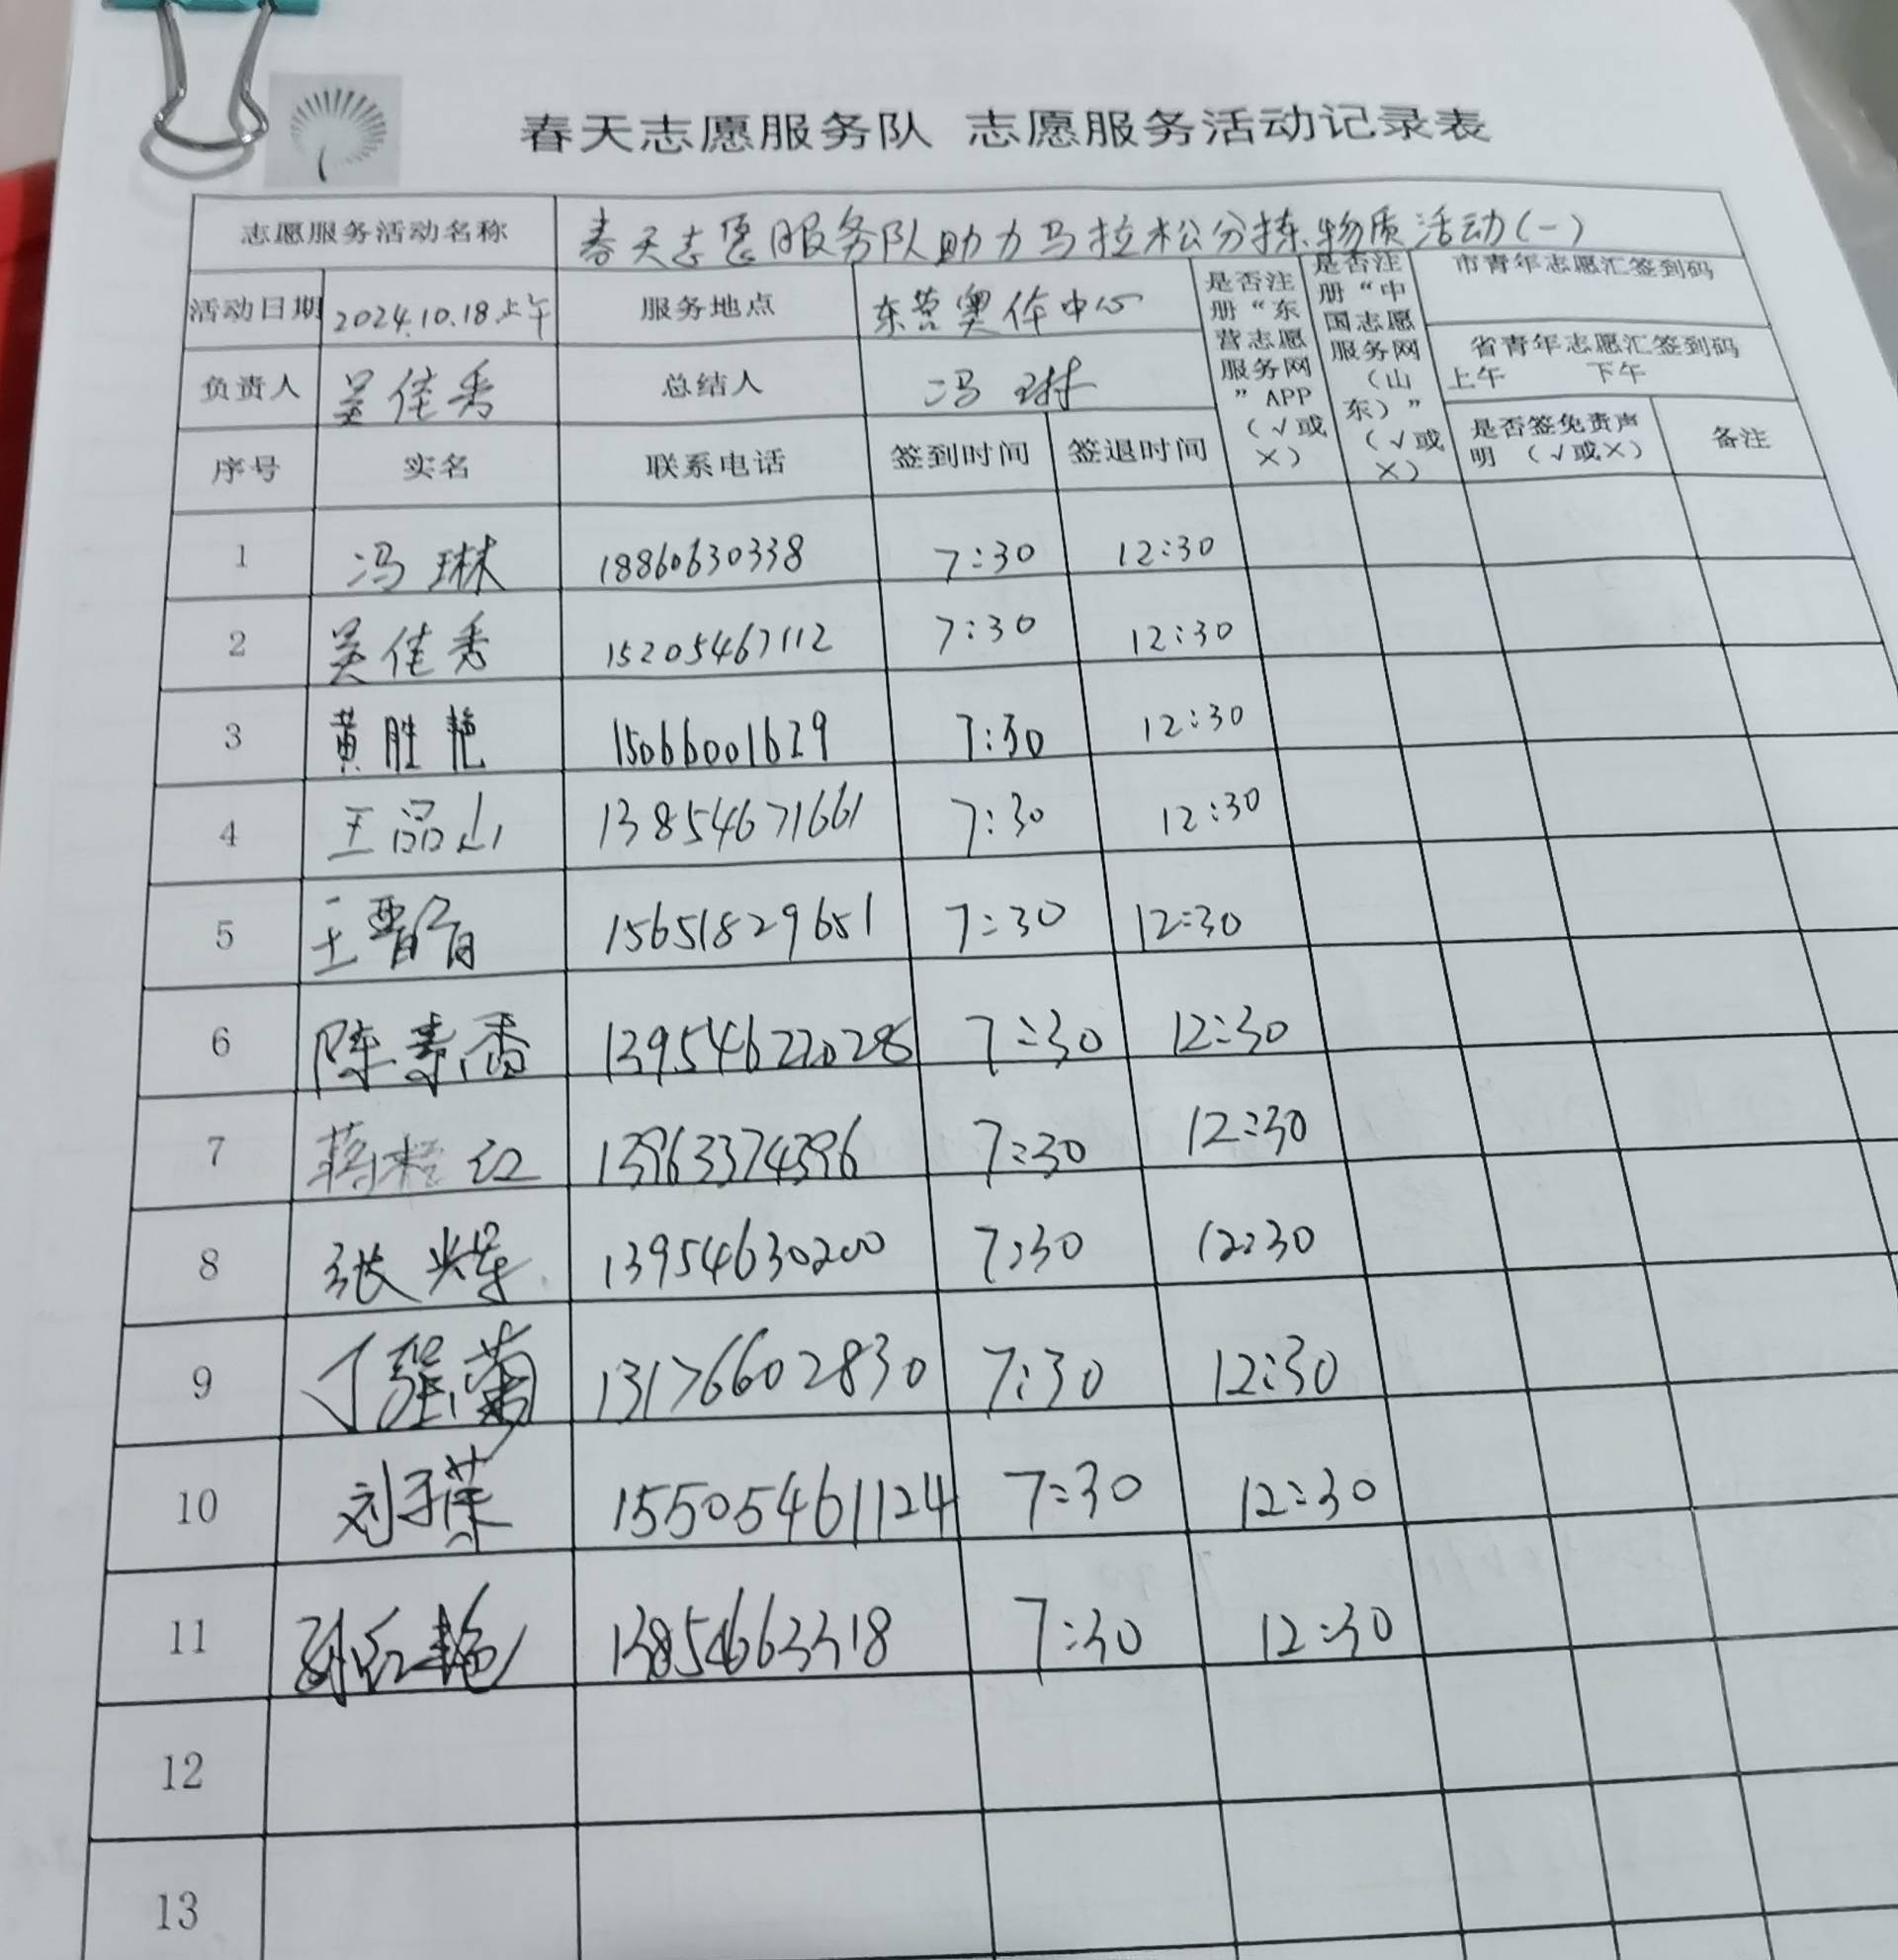 春天志愿服务队 志愿服务活动记录表
志愿服务活动名称 春天志愿服务队助力马拉松分拣物质活动(一)
活动日期 2024.10.18上午 服务地点 东营奥体中心
是否注册“东营志愿服务网”APP（√或×）
是否注册“中国志愿服务网（山东）”（√或×）
市青年志愿汇签到码
省青年志愿汇签到码
上午 下午
负责人 吴佳秀 总结人 冯琳
序号 实名 联系电话 签到时间 签退时间 是否签免责声明（√或×） 备注
1 冯琳 18860630338 7:30 12:30
2 吴佳秀 15205467112 7:30 12:30
3 黄胜艳 15066001629 7:30 12:30
4 王品山 13854671661 7:30 12:30
5 王 15651829651 7:30 12:30
6 陈寿香 13954622028 7:30 12:30
7 蒋 红 13963374396 7:30 12:30
8 张 13954630200 7:30 12:30
9 丁 13176602830 7:30 12:30
10 刘子 15505461124 7:30 12:30
11 孙红艳 13854663318 7:30 12:30
12
13